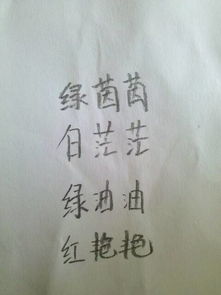 绿茵茵
白茫茫
绿油油
红艳艳